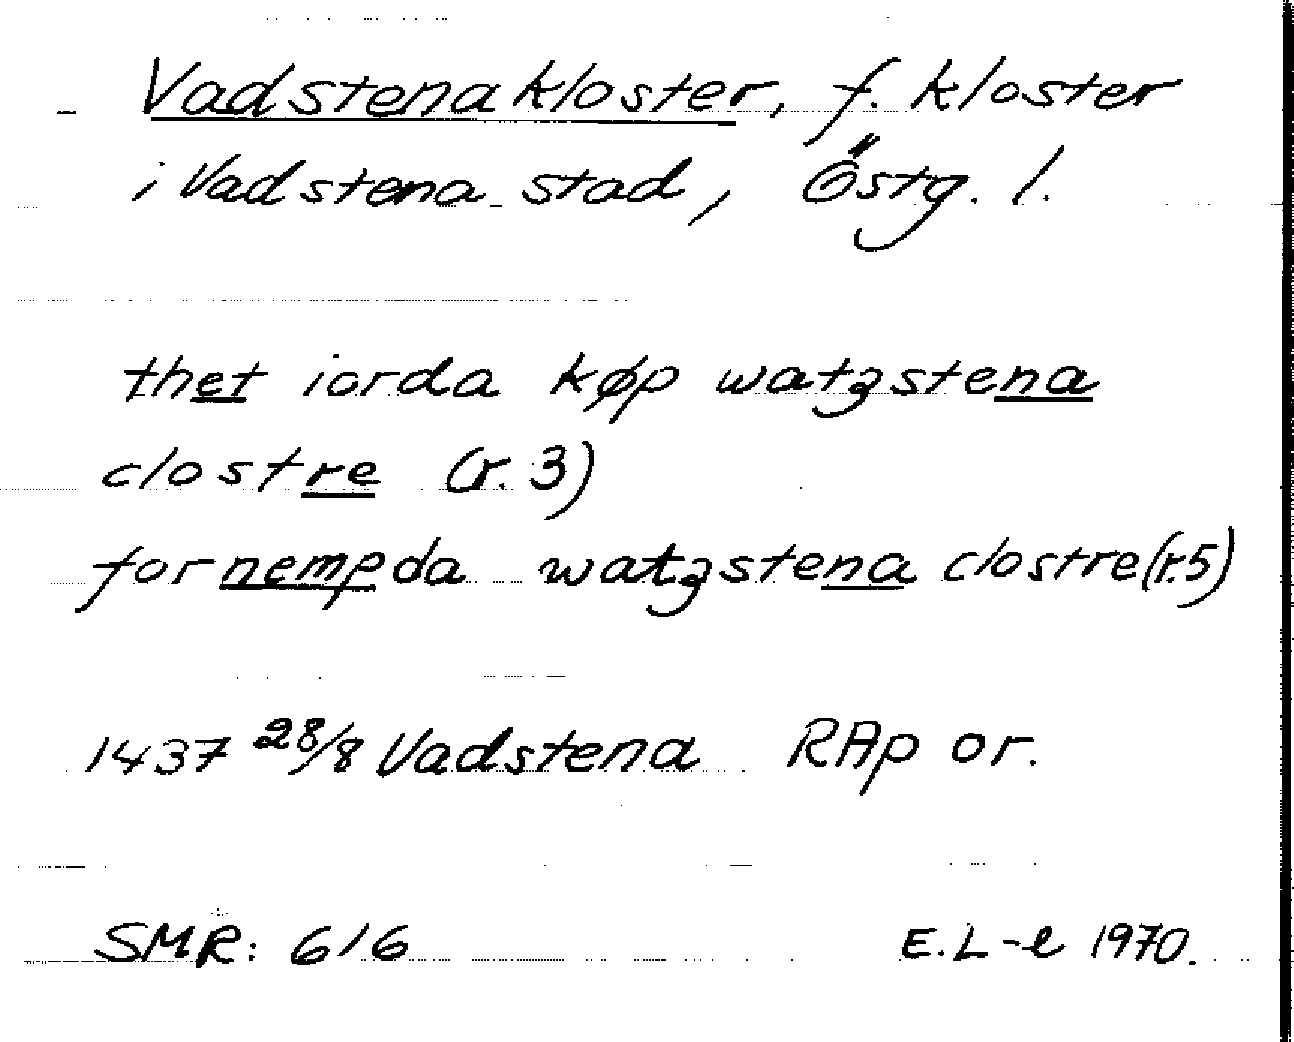 Vadstena kloster, f. kloster
i Vadstena stad, Östg. l.
thet iorda køp watzstena
clostre (r. 3)
fornempda watzstena clostre (r.5)
1437 28/8 Vadstena RAp or.
SMR: 616 E.L-e 1970.